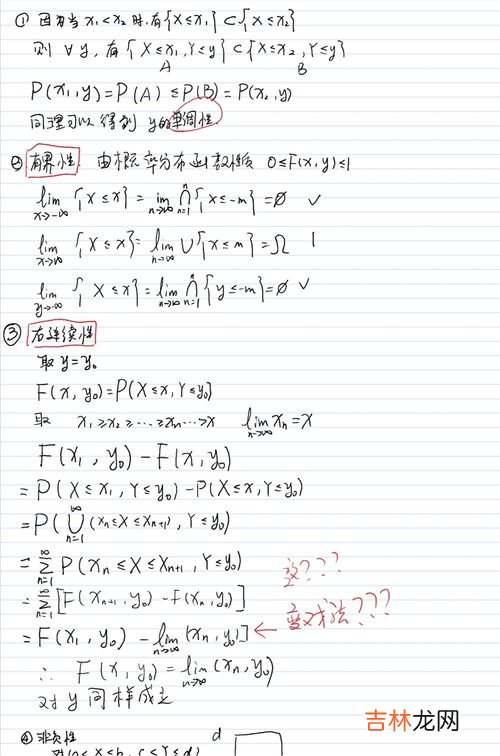 ① 因为当 x₁<x₂ 时,有{X≤x₁}⊂{X≤x₂}
则 ∀y, 有{X≤x₁,Y≤y}⊂{X≤x₂,Y≤y}
A B
P(x₁,y)=P(A)≤P(B)=P(x₂,y)
同理可以得到 y的单调性.
② 有界性. 由概率分布函数性质 0≤F(x,y)≤1
lim x→-∞ {X≤x}=lim n→∞ ⋂ n=1 n {X≤-m}=∅ ✓
lim x→∞ {X≤x}=lim n→∞ ∪{X≤m}=Ω 1
lim y→-∞ {X≤x}=lim n→∞ ⋂ n=1 n {y≤-m}=∅ ✓
③ 右连续性
取 y=y₀
F(x,y₀)=P(X≤x,Y≤y₀)
取 x₁≥x₂≥…≥xₙ…→x lim n→∞ xₙ=x
F(x₁,y₀)-F(x,y₀)
=P(X≤x₁,Y≤y₀)-P(X≤x,Y≤y₀)
=P(⋃ n=1 ∞ (xₙ≤X≤xₙ₊₁),Y≤y₀)
=∑ n=1 ∞ P(xₙ≤X≤xₙ₊₁,Y≤y₀)
=∑ n=1 ∞ [F(xₙ₊₁,y₀)-F(xₙ,y₀)]
=F(x₁,y₀)-lim n→∞ (xₙ,y₀)] ←
???
???
∴ F(x,y₀)=lim n→∞ (xₙ,y₀)
对 y 同样成立
④ 非负性 d
吉林龙网